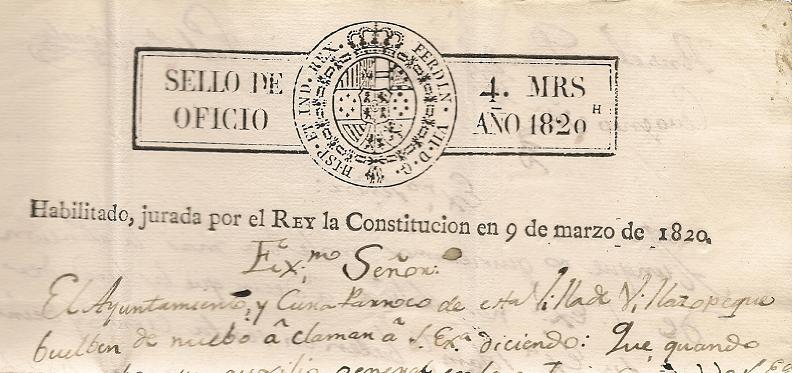 SELLO DE
OFICIO
HISP. ET IND. REX. FERDIN. VII. D. G.
4. MRS
AÑO 1820 H
Habilitado, jurada por el REY la Constitucion en 9 de marzo de 1820.
Ex.mo Señor:
El Ayuntamiento, y Cura Parroco de esta Villa de Villazopeque
buelben de nuebo â claman â S. Exª diciendo: Que quando
auxilio general